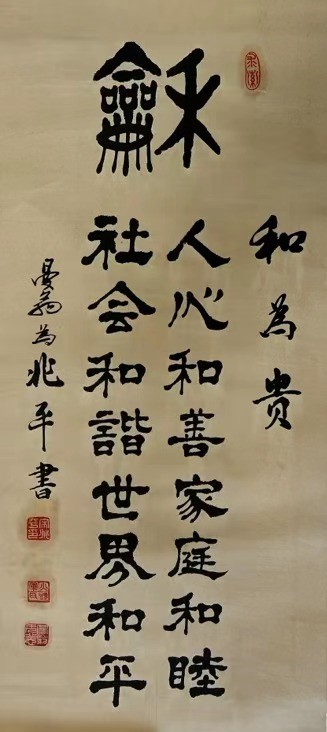 龢
和為贵
人心和善家庭和睦
社会和諧世界和平
曼翁为兆平書